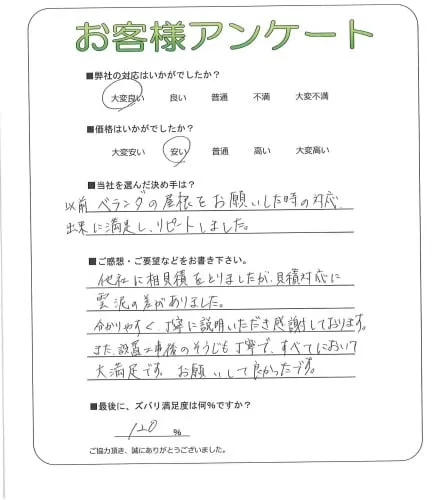 お客様アンケート
■弊社の対応はいかがでしたか?
大変良い 良い 普通 不満 大変不満
■価格はいかがでしたか?
大変安い 安い 普通 高い 大変高い
■当社を選んだ決め手は?
以前 ベランダの屋根をお願いした時の対応、
出来に満足し、リピートしました。
■ご感想・ご要望などをお書き下さい。
他社に相見積をとりましたが、見積対応に
雲泥の差がありました。
分かりやすく、丁寧に説明いただき感謝しております。
また、設置工事後のそうじも丁寧で、すべてにおいて
大満足です。お願いして良かったです。
■最後に、ズバリ満足度は何%ですか?
120 %
ご協力頂き、誠にありがとうございました。